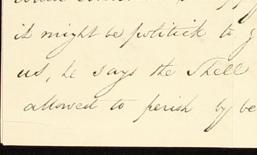 it might be politick to
us, he says the Shell
allowed to perish by be